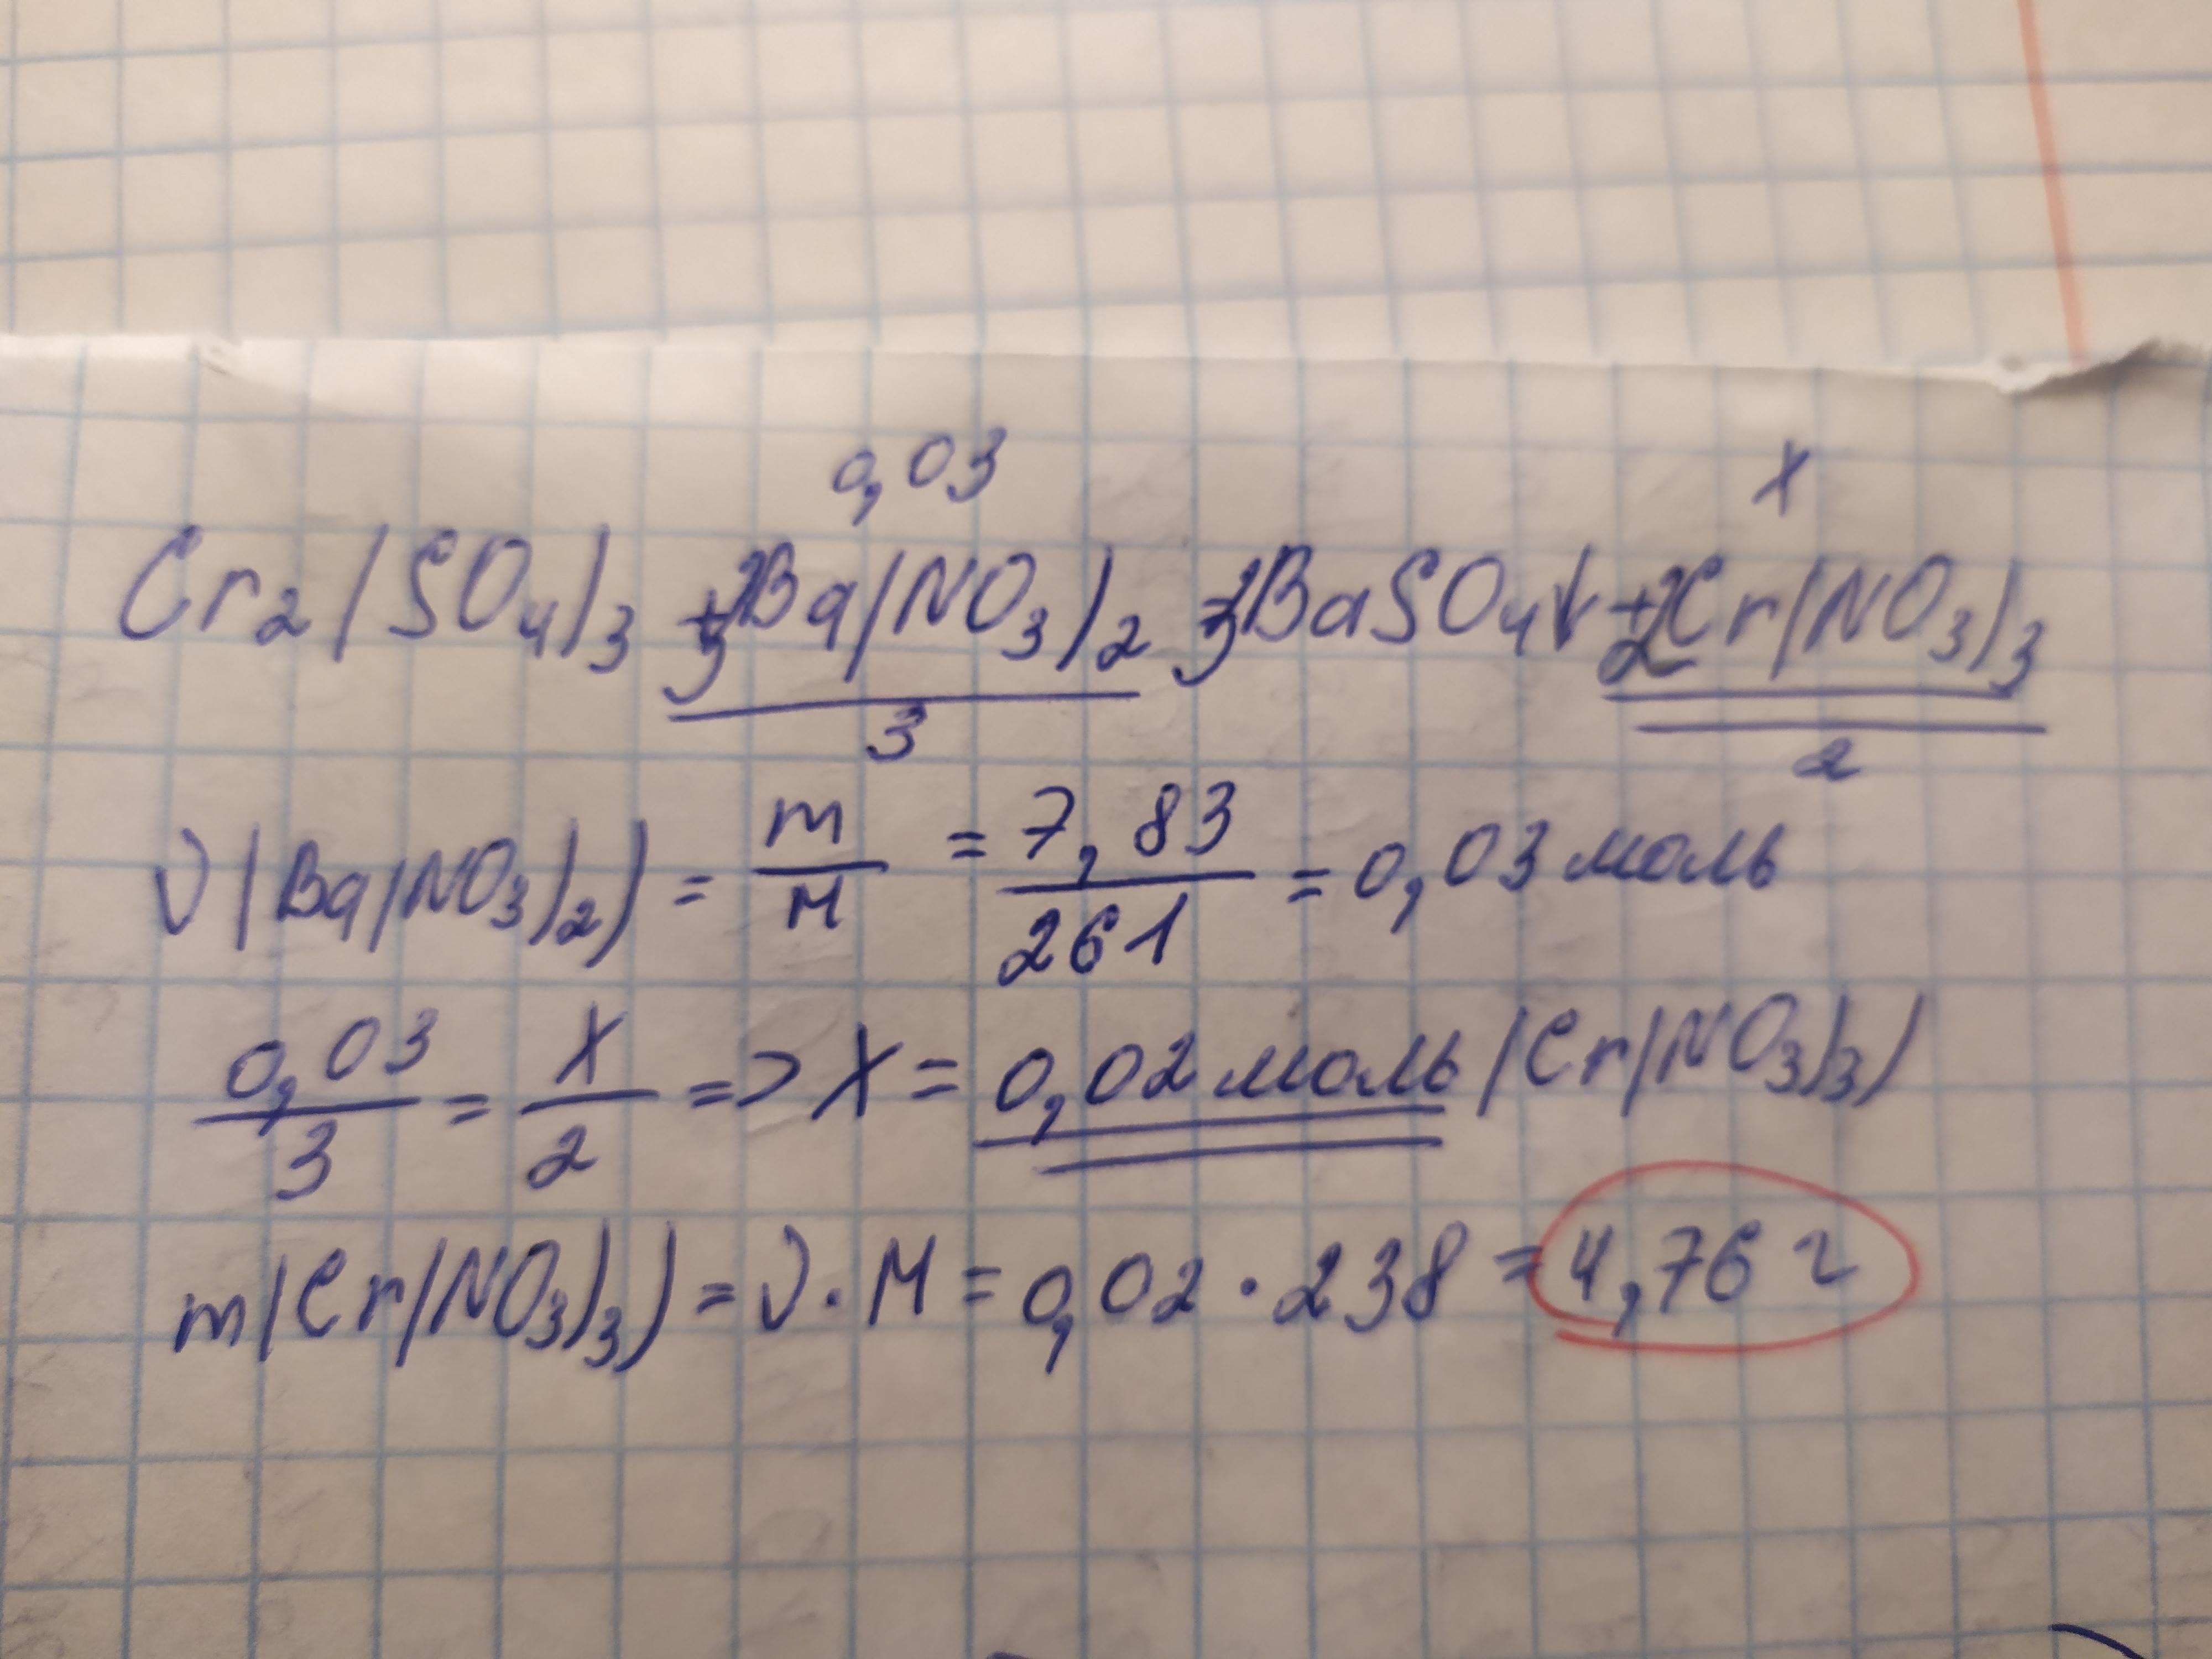 0,03 x
Cr₂(SO₄)₃ + 3Ba(NO₃)₂ = 3BaSO₄↓ + 2Cr(NO₃)₃
3 2
ν(Ba(NO₃)₂) = m/M = 7,83/261 = 0,03 моль
0,03/3 = x/2 => x = 0,02 моль (Cr(NO₃)₃)
m(Cr(NO₃)₃) = ν · M = 0,02 · 238 = 4,76 г